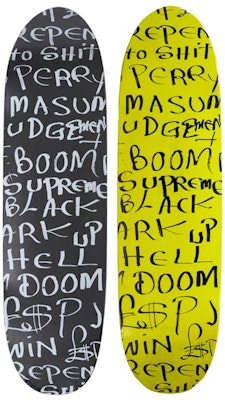 REPEN
to SHIT
PERRY
MASUM
UDGEMENT
BOOM
SUPREME
BLACK
ARK UP
HELL
DOOM
£$P J
WIN £$P
REPEN
REPENT
to SHIT
PERRY
MASUM
UDGEMENT
BOOM
SUPREME
BLACK
ARK UP
HELL
DOOM
£$P J
WIN £$P
REPEN